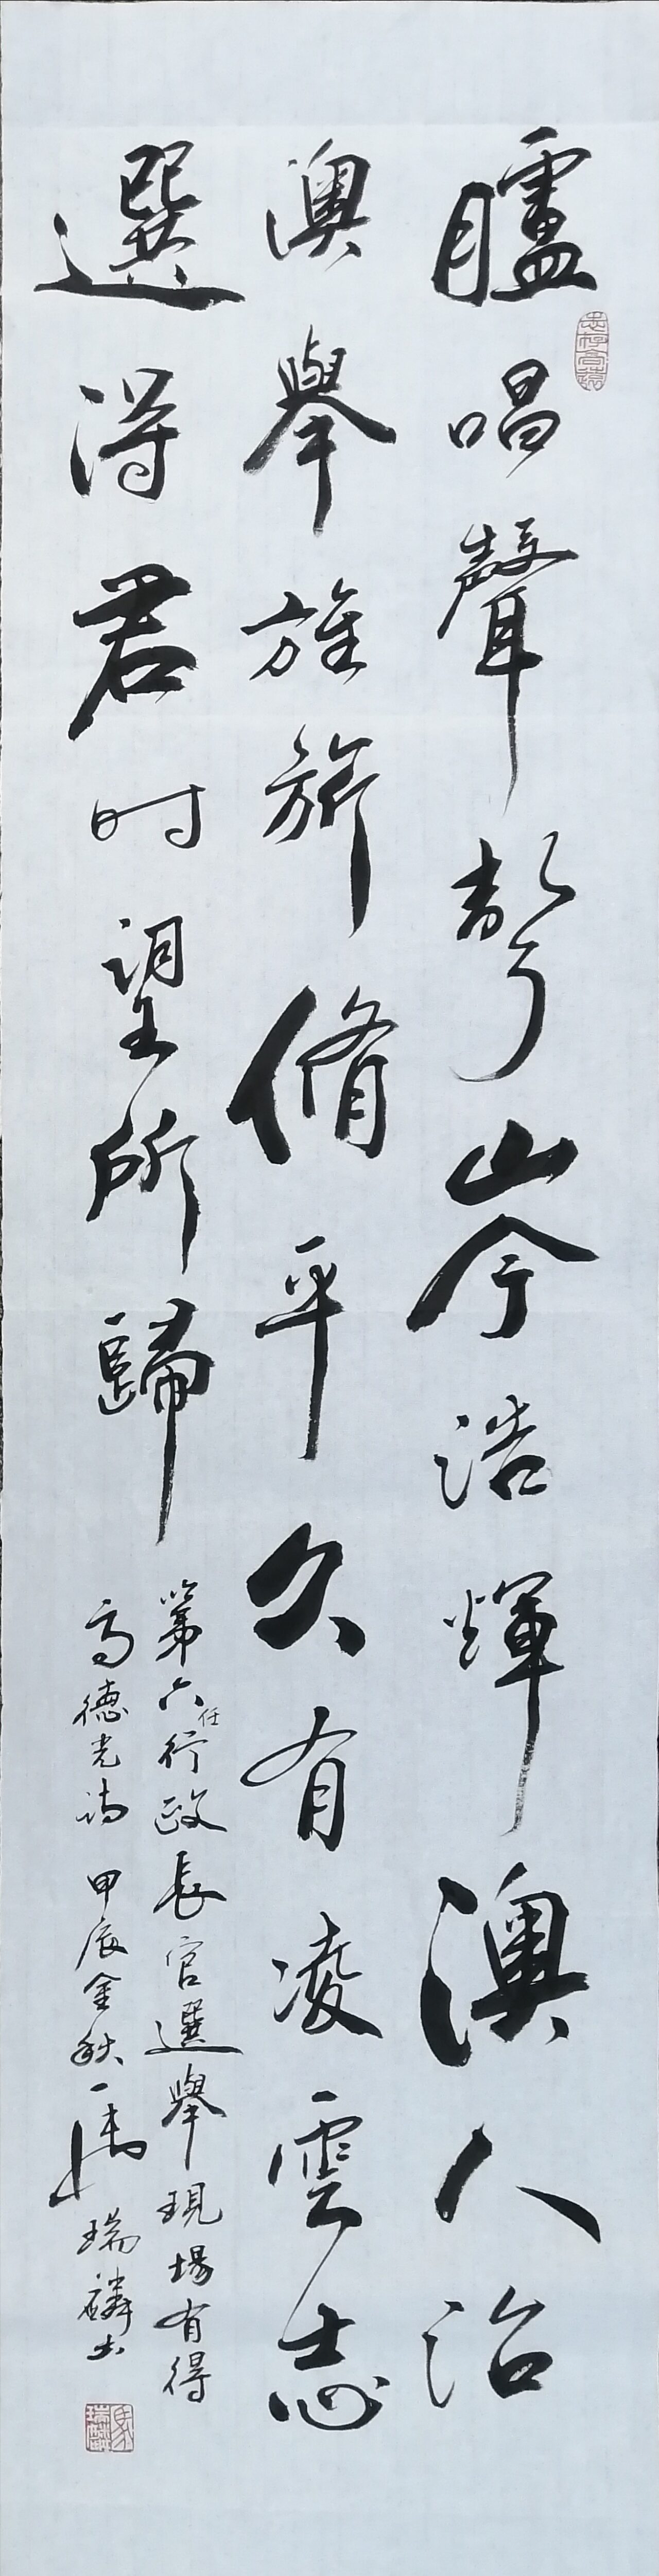 臚唱聲聲岑浩輝澳人治
澳舉旌旂脩平久有凌雲志
選得君时望所歸
第六任行政長官選舉現場有得
高德光詩 甲辰金秋 馮瑞麟书
志存高遠